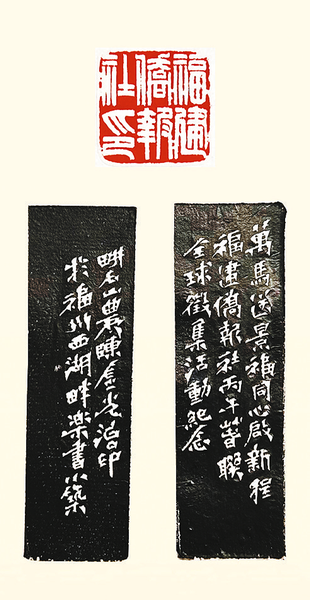 福建
僑報
社印
萬馬送景福同心啟新程
福建僑報社丙午春聯
全球徵集活動紀念
山農陳金光治印
於福州西湖畔樂書小築